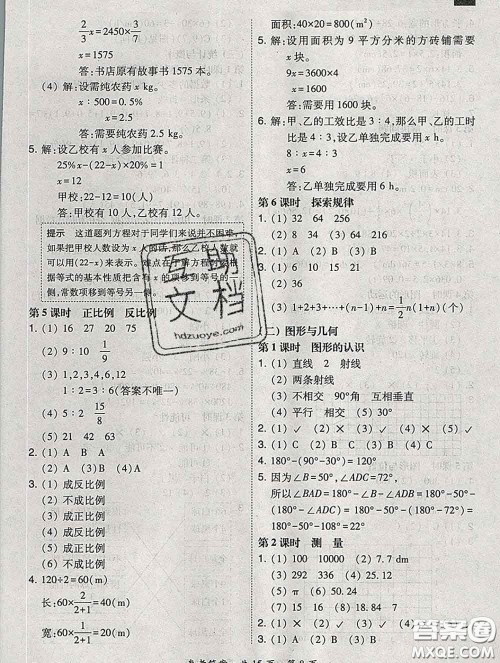 2/3 x=2450×3/7
x=1575
答:书店原有故事书 1575 本。
(4) 解:设需纯农药 x kg。
x∶500=0.5%
x=2.5
答:需要纯农药 2.5 kg。
5. 解:设乙校有 x 人参加比赛。
25%x-(22-x)×20%=1
x=12
甲校:22-12=10(人)
答:甲校有 10 人,乙校有 12 人。
提示 这道题列方程对于同学们来说并不困难,
如果把甲校人数设为 x 人的话,那么乙校人数就
可以用(22-x)来表示。难点在于解方程时要根
据等式的基本性质把含有 x 的项移到等号的一
侧,常数项移到等号另一侧。
第 5 课时 正比例 反比例
1. (1) 16 27 20 75
(2) 9∶10 1/9
(3) 1,2,3,4,6,12
1∶2=3∶6(答案不唯一)
(4) 5∶2 15/8
(5) 21 42 63
2. (1) A (2) A (3) B (4) B
3. (1) 成反比例
(2) 不成比例
(3) 成正比例
(4) 成反比例
(5) 成正比例
(6) 不成比例
4. 120÷2=60(m)
长:60×2/(2+1)=40(m)
宽:60×1/(2+1)=20(m)
面积:40×20=800(m²)
5. 解:设用面积为 9 平方分米的方砖铺需要
x 块。
9x=3600×4
x=1600
答:需要用 1600 块。
6. 解:甲、乙的工效比是 3∶4,那么甲、乙的工作
时间比就是 4∶3。设乙单独完成要用 x h。
8∶x=4∶3
x=6
答:乙单独完成要用 6 h。
第 6 课时 探索规律
1. (1) 32 64 256
(2) 16 32 64
(3) 15 21 28
2. (1) A (2) B (3) B
3. (1) 10 15
(3) 1+2+3+…+(n-1)+n=1/2 n(1+n)(个)
(二) 图形与几何
第 1 课时 图形的认识
1. (1) 直线 2 射线
(2) 两条射线
(3) 不相交 90°角 互相垂直
(4) 平行 相交
2. (1) ✓ (2) × (3) × (4) × (5) ✓
3. (1) C (2) B (3) C
4. 180°-(90°-30°)=120°
5. 因为∠BAC=50°,∠ADC=72°,
第 2 课时 测 量
1. (1) 100 (2) 7.7 dm
(3) 10 5 (4) 358 25.14
(5) π (6) 9.42 25.12
2. (1) × (2) × (3) ✓ (4) ×
互助文档
hdzuoye.com
答案圈
MXQE.COM